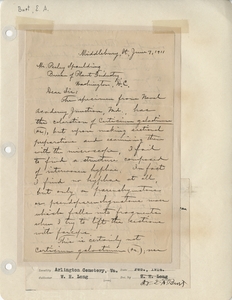 Burt, E. A.
Middlebury, Vt., June 7, 1911
Mr. Perley Spaulding
Bureau of Plant Industry
Washington, D.C.
Dear Sir:
This specimen from
Academy Junction, Md. has
the coloration of Corticium galactinum
(Fr.), but upon making sectional
preparations and examining them
with the microscope, I fail
to find a structure composed
of interwoven hyphae. In fact
I find no hyphae at all,
but only a pseudoparenchyma
or pseudoparenchymatous
mass which falls into fragments
when I try to lift the sections
with forceps.
This is certainly not
Corticium galactinum (Fr.), nor
Arlington Cemetery, Va.
W. H. Long
W. H. Long